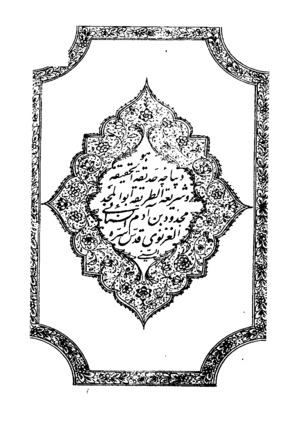 دیباچه حدیقة الحقیقه
و شریعة الطریقه ابوالمجد
مجدود بن آدم سنائی
الغزنوی قدس سره